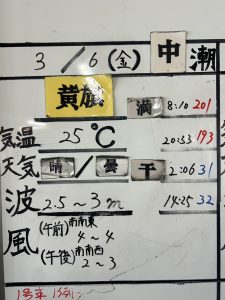 3/6(金) 中潮
黄旗 満 8:10 201
気温 25℃ 20:33 193
天気 晴/曇 干 2:06 31
波 2.5~3m 14:25 32
風 (午前)南南東 4~4
(午後)南南西 2~3
1号車